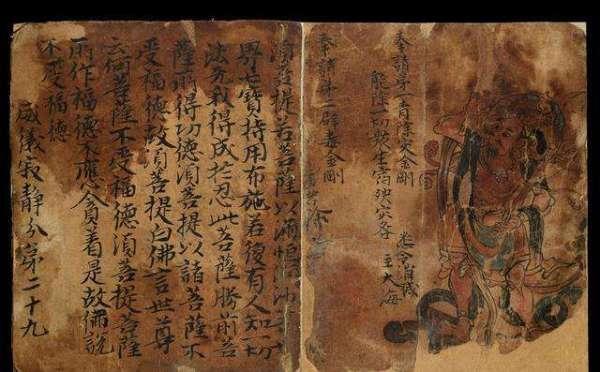 奉請第一青除灾金剛
能除一切眾生宿殃灾等
悉令消滅
主大海
奉請第二辟毒金剛
須菩提若菩薩以滿恒河沙等
界七寶持用布施若後有人知一切
法无我得成於忍此菩薩勝前菩
薩所得功德須菩提以諸菩薩不
受福德故須菩提白佛言世尊
云何菩薩不受福德須菩提菩薩
所作福德不應貪着是故佛說
不受福德
威儀寂靜分第二十九